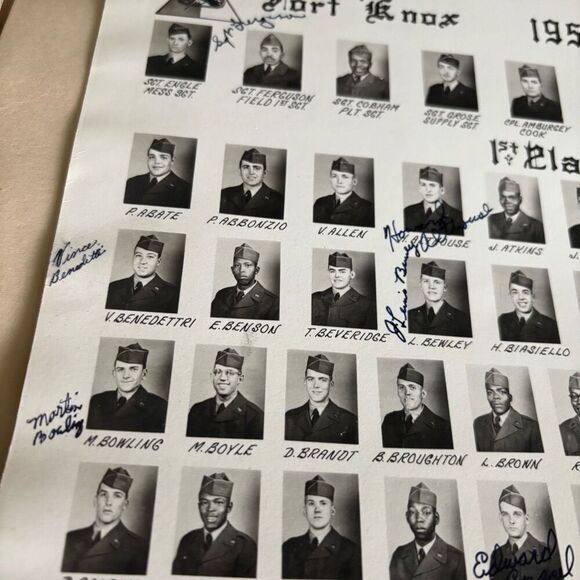 Fort Knox 195
Sgt Ferguson
SGT. ENGLE
MESS SGT.
SGT. FERGUSON
FIELD 1ST SGT.
SGT. COBHAM
PLT SGT.
SGT. GROSE
SUPPLY SGT
CPL. AMBURGEY
COOK
1st Pla
P. ABATE
P. ABBONZIO
V. ALLEN
OUSE
J. ATKINS
J.
Vince
Benedetti
V. BENEDETTRI
E. BENSON
T. BEVERIDGE
L. BEWLEY
H. BIASIELLO
J.
Martin
Bowling
M. BOWLING
M. BOYLE
D. BRANDT
B. BROUGHTON
L. BROWN
R
Edward